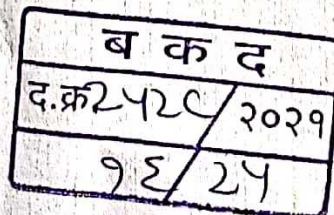 ब क द
द.क्र२५२८/२०२१
१६/२५